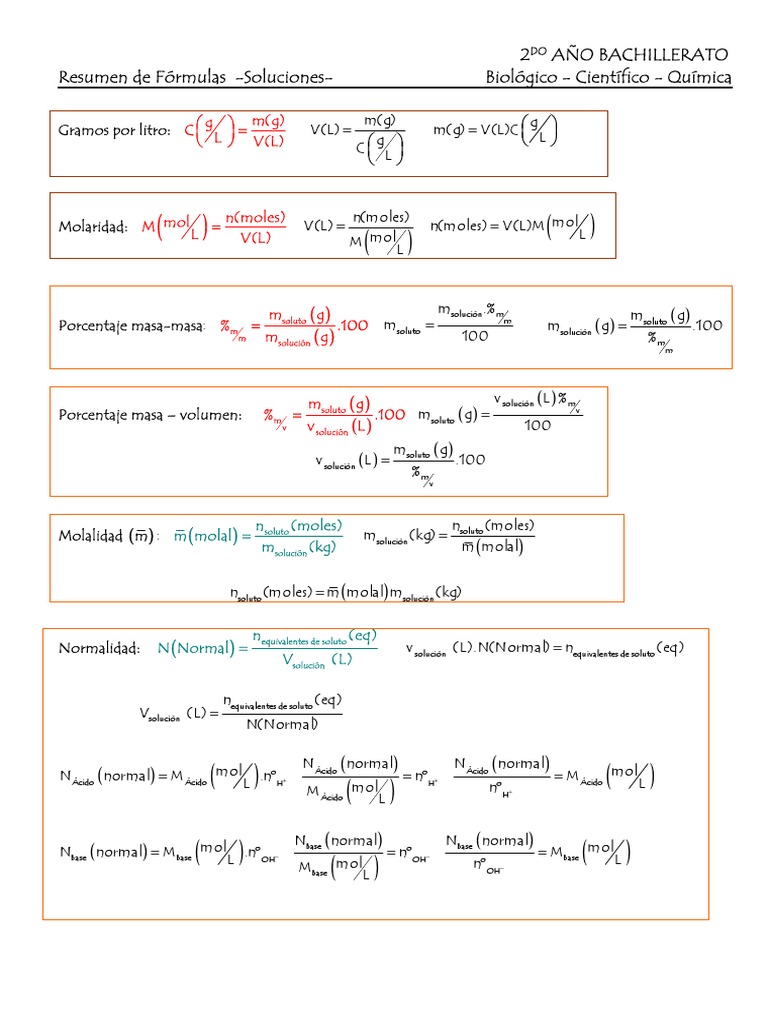 2ᴰᴼ AÑO BACHILLERATO
Resumen de Fórmulas -Soluciones- Biológico – Científico – Química
Gramos por litro: C(g/L) = m(g)/V(L) V(L) = m(g)/C(g/L) m(g) = V(L)C(g/L)
Molaridad: M(mol/L) = n(moles)/V(L) V(L) = n(moles)/M(mol/L) n(moles) = V(L)M(mol/L)
Porcentaje masa-masa: %m/m = m soluto (g)/m solución (g) .100 m soluto = m solución .%m/m / 100 m solución (g) = m soluto (g)/%m/m .100
Porcentaje masa – volumen: %m/v = m soluto (g)/v solución (L) .100 m soluto (g) = v solución (L) %m/v / 100
v solución (L) = m soluto (g)/%m/v .100
Molalidad (m̅): m̅(molal) = n soluto (moles)/m solución (kg) m solución (kg) = n soluto (moles)/m̅(molal)
n soluto (moles) = m̅(molal) m solución (kg)
Normalidad: N(Normal) = n equivalentes de soluto (eq)/V solución (L) v solución (L).N(Normal) = n equivalentes de soluto (eq)
V solución (L) = n equivalentes de soluto (eq)/N(Normal)
N Ácido (normal) = M Ácido (mol/L).nº H⁺ N Ácido (normal)/M Ácido (mol/L) = nº H⁺ N Ácido (normal)/nº H⁺ = M Ácido (mol/L)
N base (normal) = M base (mol/L).nº OH⁻ N base (normal)/M base (mol/L) = nº OH⁻ N base (normal)/nº OH⁻ = M base (mol/L)